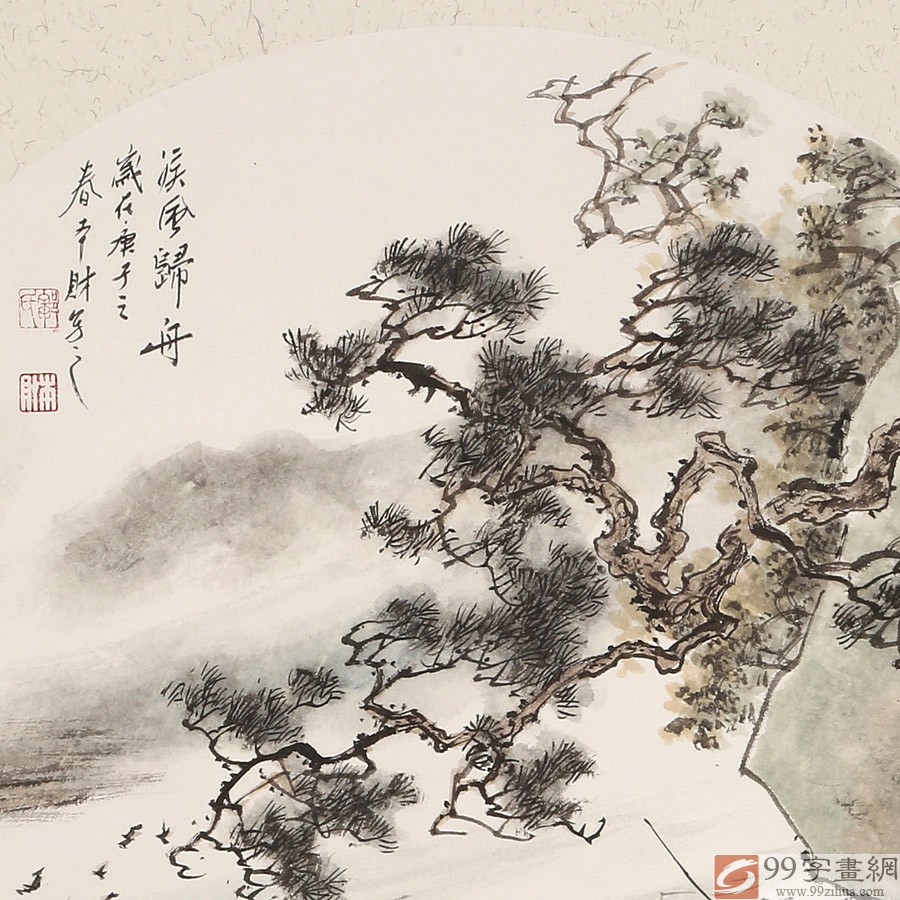 疾風歸舟
歲在庚子之
春本財寫之
本財
99字畫網
www.99zihua.com